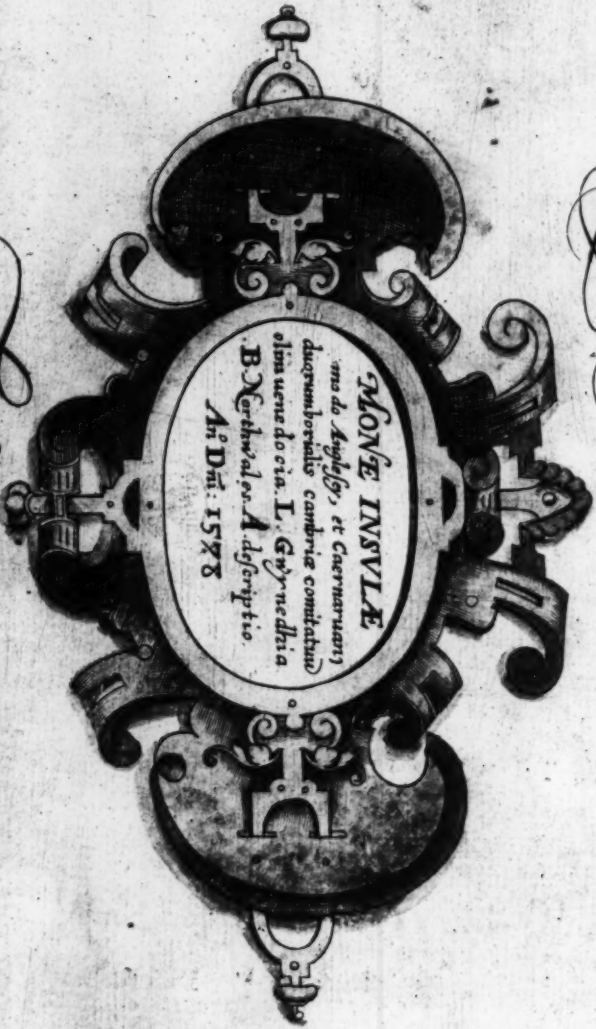 MONÆ INSVLÆ
modo Anglesey, et Caernaruan,
duorum borialis cambriæ comitatuu
olim uenedocia. L. Gwynedhia
.B. Northwales. A. descriptio.
An̄ Dn̄i: 1578